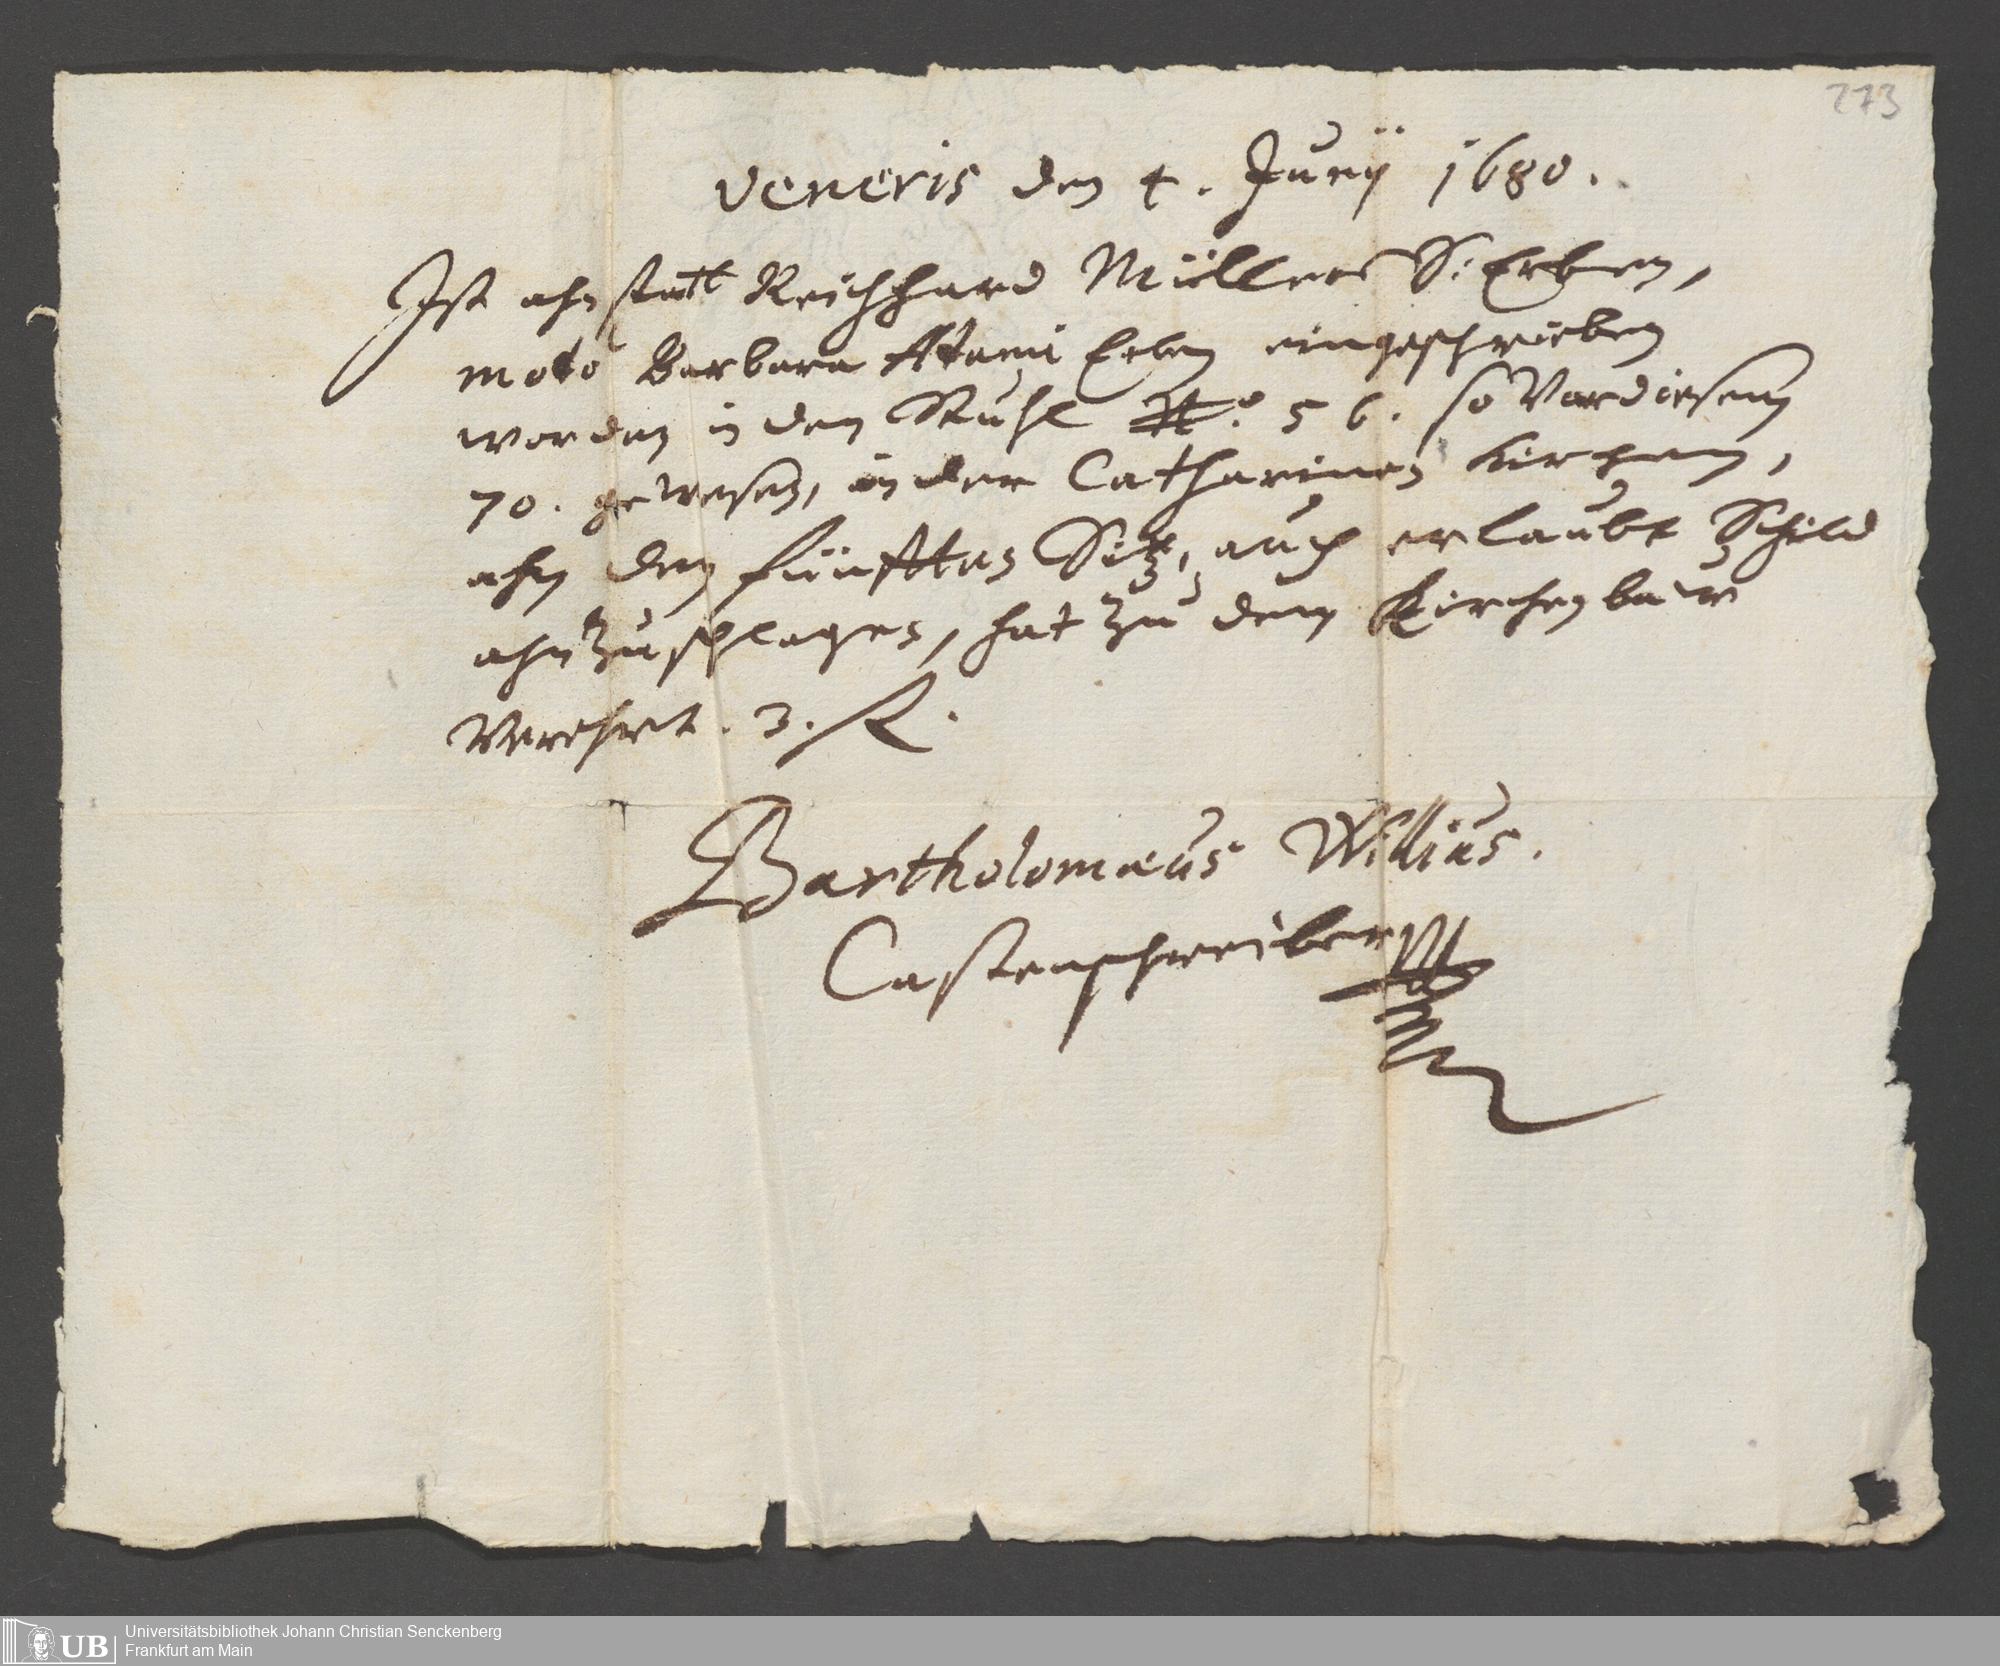 273
Veneris den 4. Junÿ 1680.
Ist ahn statt Reichhard Müllers S: Erben,
modo Barbara Erben eingeschrieben
worden in den Stuhl No. 56. so Vor diesem
70. gewesen, in der Catharinen Kirchen,
ahn den fünfften Sitz, auch erlaubt Schild
ahnzuschlagen, hat zu dem Kirchenbaw
Verehrt. 3. R.
Bartholomæus Willius.
Castenschreiber
UB
Universitätsbibliothek Johann Christian Senckenberg
Frankfurt am Main